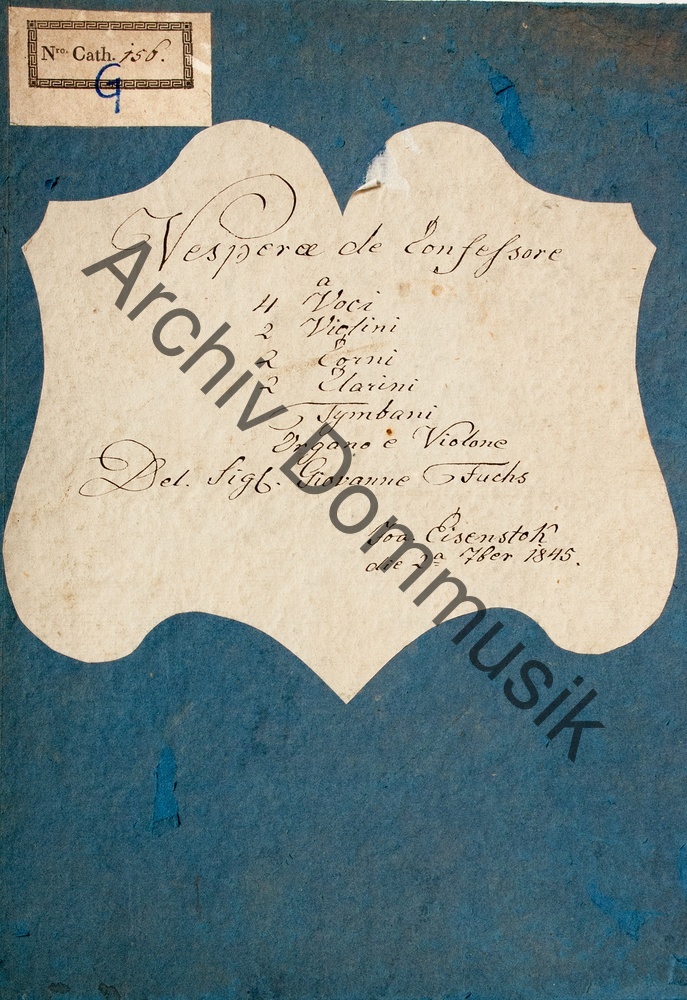 Nro. Cath. 156.
G
Vesperæ de Confessore
a
4 Voci
2 Violini
2 Corni
2 Clarini
Tymbani
Organo e Violone
Del. Sigl. Giovanne Fuchs
Joa. Eisenstok
die 2a 7ber 1845.
Archiv Dommusik